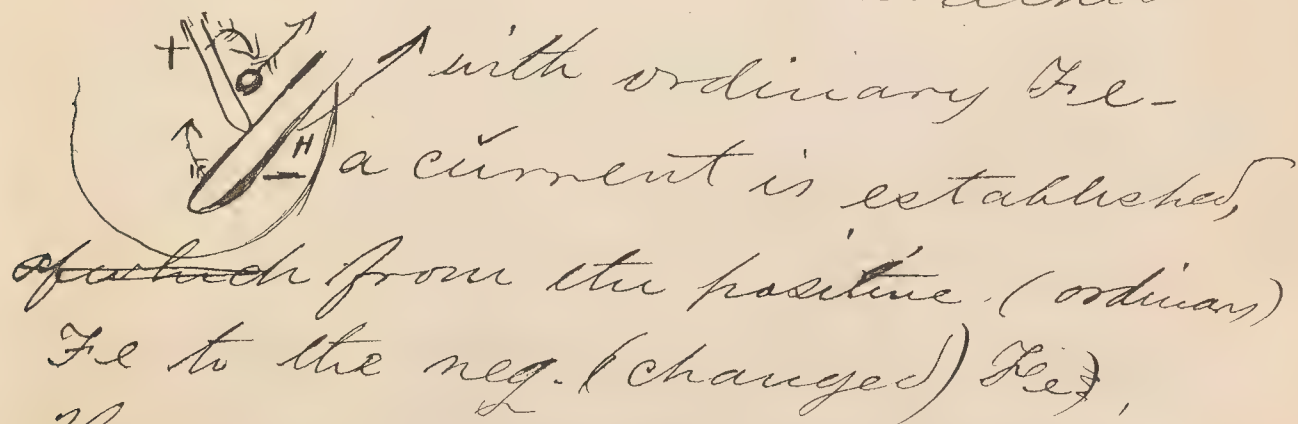 + with ordinary Fe-
H
- a current is established,
ofwhich from the positive (ordinary)
Fe to the neg. (changed) Fe),